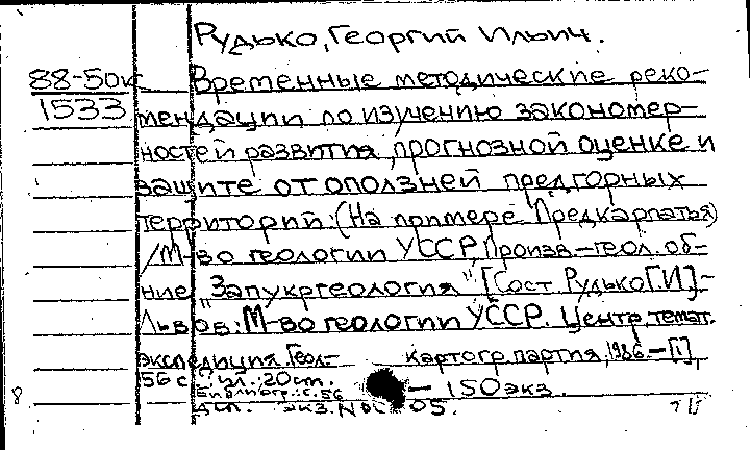 Рудько, Георгий Ильич.
88-50к
1533
Временные методические реко-
мендации по изучению закономер-
ностей развития, прогнозной оценке и
защите от оползней предгорных
территорий: (На примере Предкарпатья)
/М-во геологии УССР, Произв.-геол. об-
ние „Запукргеология" [Сост. Рудько Г.И.]-
Львов: М-во геологии УССР. Центр. темат.
экспедиция. Геол.- картогр. партия, 1986.-[1],
56 с.: ил.; 20 см. - 150 экз.
Библиогр.: с. 56
экз. 05.
8